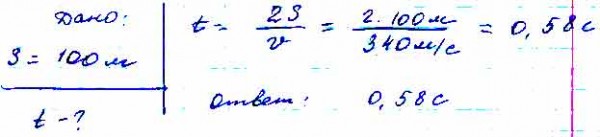 Дано:
S = 100 м
t - ?
t = 2S / v = 2·100 м / 340 м/с = 0,58 с
ответ: 0,58 с